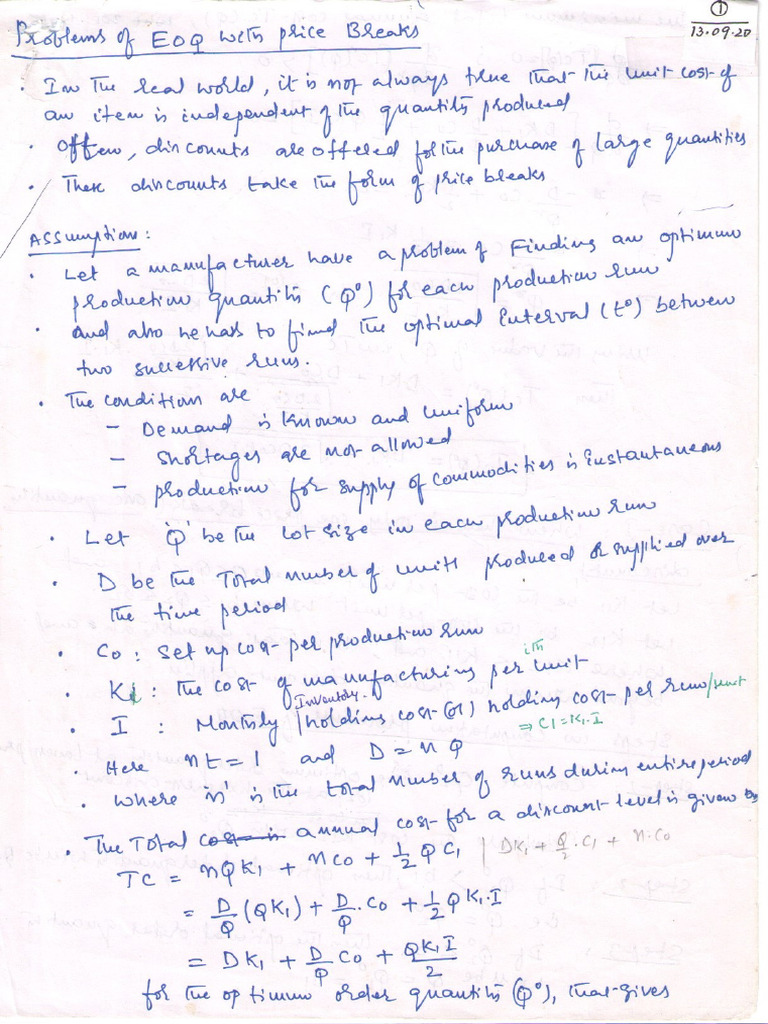 ①
13.09.20
Problems of EOQ with price Breaks
• In the real world, it is not always true that the unit cost of
an item is independent of the quantity produced
• Often, discounts are offered for the purchase of large quantities
• These discounts take the form of price breaks
Assumption:
• Let a manufacturer have a problem of Finding an optimum
production quantity (Q⁰) for each production run
• and also he has to find the optimal interval (t⁰) between
two successive runs.
• The condition are
– Demand is known and uniform
– Shortages are not allowed
– production for supply of commodities is instantaneous
• Let 'Q' be the lot size in each production run
• D be the Total number of units produced or supplied over
the time period
• Co : Set up cost per production run
ith
• Ki : The cost of manufacturing per unit
Inventory.
• I : Monthly / holding cost (or) holding cost per run/unit
⇒ C1 = K1.I
• Here nt = 1 and D = nQ
• where 'n' is the total number of runs during entire period
• The Total cost is annual cost for a discount level is given by
TC = nQK1 + nCo + 1/2 QC1 | DK1 + Q/2 .C1 + n.Co
= D/Q (QK1) + D/Q . Co + 1/2 QK1.I
= DK1 + D/Q Co + QK1I/2
for the optimum order quantity (Q⁰), that gives